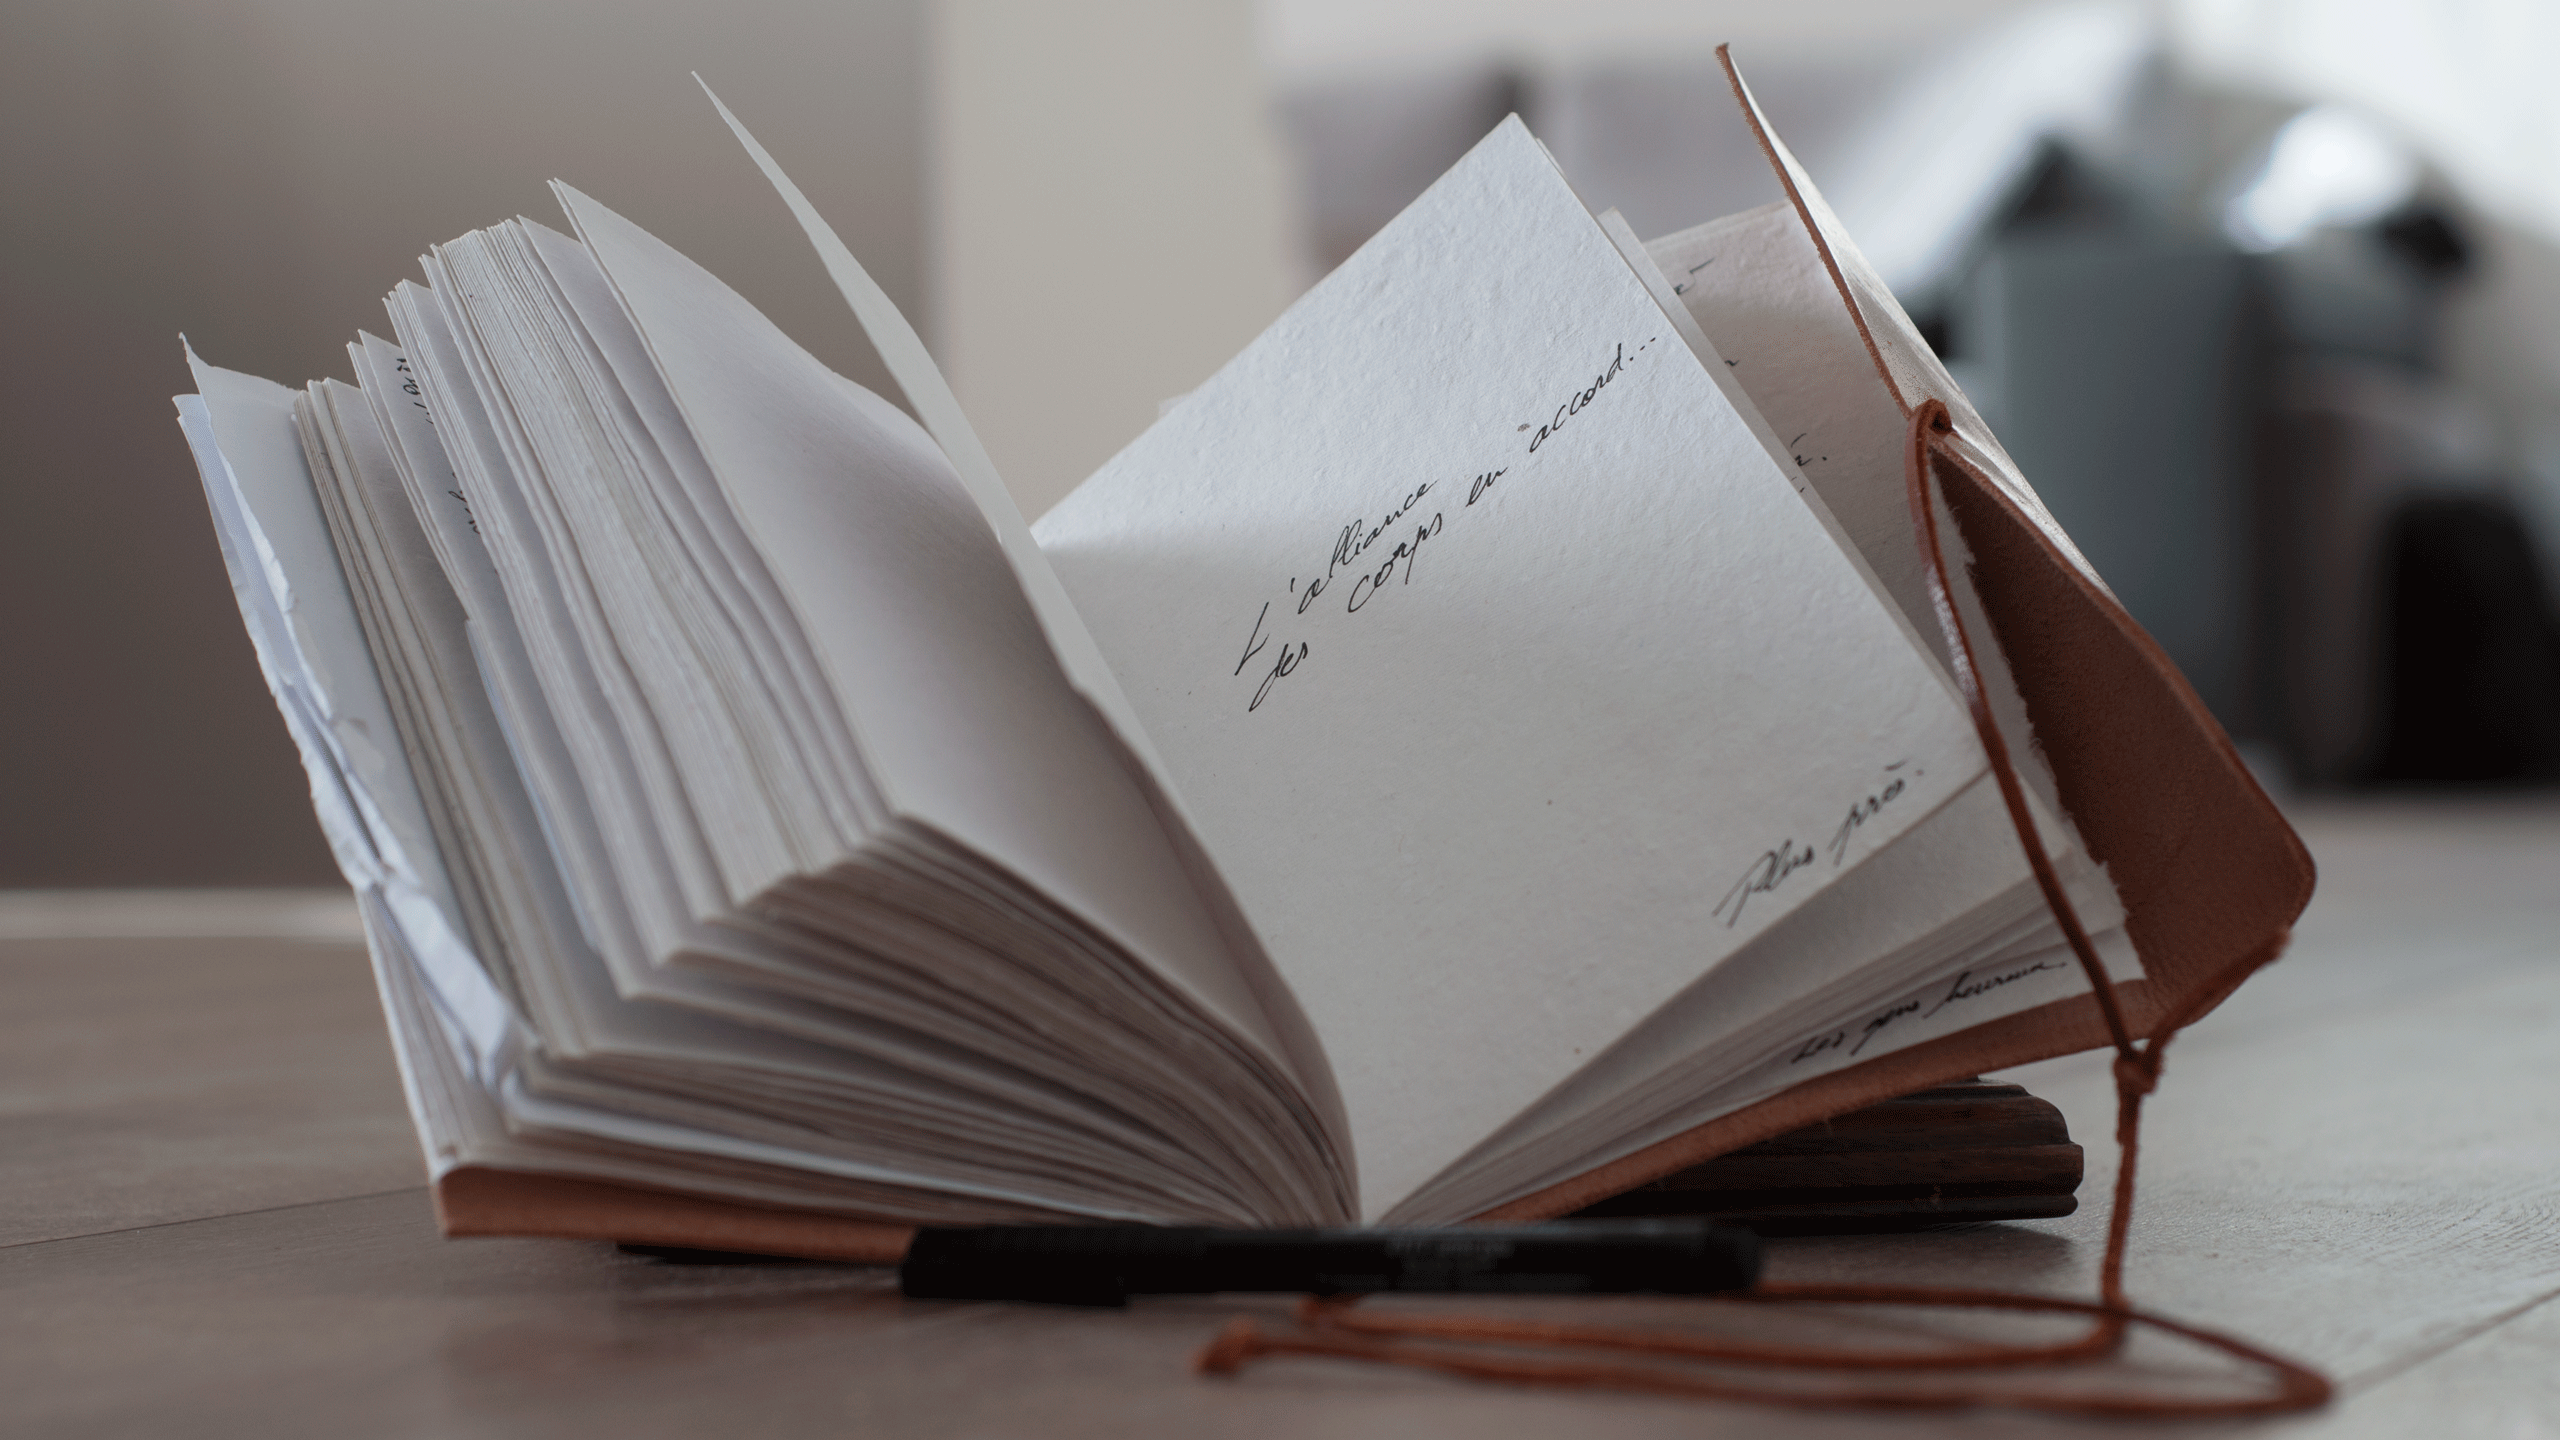 L'alliance
des corps en accord...
Plus près.
Les gens heureux.